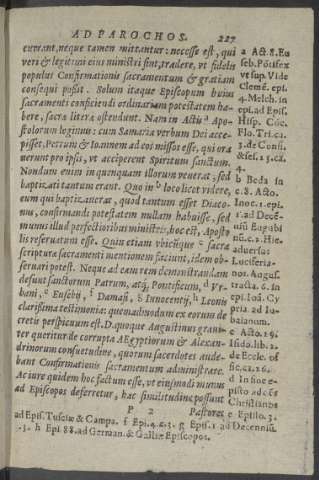 AD PAROCHOS. 227
currant, neque tamen mittantur: necesse est, qui
veri & legitimi eius ministri sint, tradere, vt fidelis
populus Confirmationis sacramentum & gratiam
consequi possit. Solum itaque Episcopum huius
sacramenti conficiendi ordinariam potestatem ha-
bere, sacra litera ostendunt. Nam in Actis a Apo-
stolorum legimus: cum Samaria verbum Dei acce-
pisset, Petrum & Ioannem ad eos missos esse, qui ora
uerunt pro ipsis, vt acciperent Spiritum sanctum.
Nondum enim in quenquam illorum venerat, sed
baptizati tantum erant. Quo in b loco licet videre,
eum qui baptizauerat, quod tantum esset Diaco-
nus, confirmandi potestatem nullam habuisse, sed
munus illud perfectioribus ministris, hoc est, Aposto
lis reseruatum esse. Quin etiam vbicũque c sacra
scriptura sacramenti mentionem faciunt, idem ob-
seruari potest. Neque ad eam rem demonstrandam
desunt sanctorum Patrum, atq; Pontificum, d Vr-
bani, e Eusebij, f Damasi, g Innocentij, h Leonis
clarissima testimonia: quemadmodum ex eorum de
cretis perspicuum est. D. quoque Augustinus graui-
ter queritur de corrupta AEgyptiorum & Alexan-
drinorum consuetudine, quorum sacerdotes aude-
bant Confirmationis sacramentum administrare.
Ac iure quidem hoc factum esse, vt eiusmodi munus
ad Episcopos deferretur, hac similitudine possunt
P 2 Pastores
a Act. 8. Eu
seb. Põtifex
vt sup. Vide
Clemẽ. epi.
4. Melch. in
epi. ad Epis.
Hisp. Cõc.
Flo. Tri. ca.
3. de Confi.
& sess. 23. ca.
4.
b Beda in
c. 8. Acto.
Inoc. 1. epi.
1. ad Decẽ-
tiũ Eugubi
nũ. c. 3. Hie.
aduersus
Luciferia-
nos. Augus.
tracta. 6. in
epi. Ioã. Cy
pria. ad Iu-
baianum.
c Acto. 19.
Isido. lib. 2.
de Eccle. of
fic. ca. 26.
d In sinc e-
pisto ad oẽs
Christianos
e Epi. 3.
ad Epis. Tusciæ & Campa. f Epi. 4. g Epis. 1. ad Decenniũ.
3. h Epi. 88. ad German. & Galliæ Episcopos.